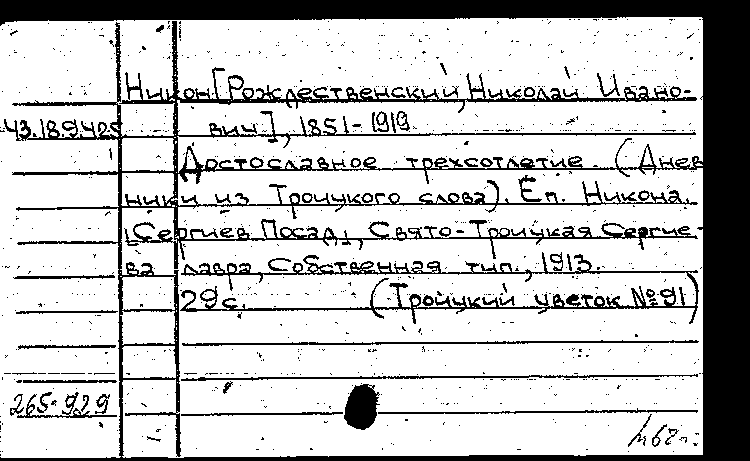 Никон [Рождественский, Николай Ивано-
43.189.425 вич], 1851-1919
Достославное трехсотлетие. (Днев
ники из Троицкого слова). Еп. Никона.
[Сергиев Посад], Свято-Троицкая Сергие-
ва лавра, Собственная тип., 1913.
29с. (Троицкий цветок №91)
265-929